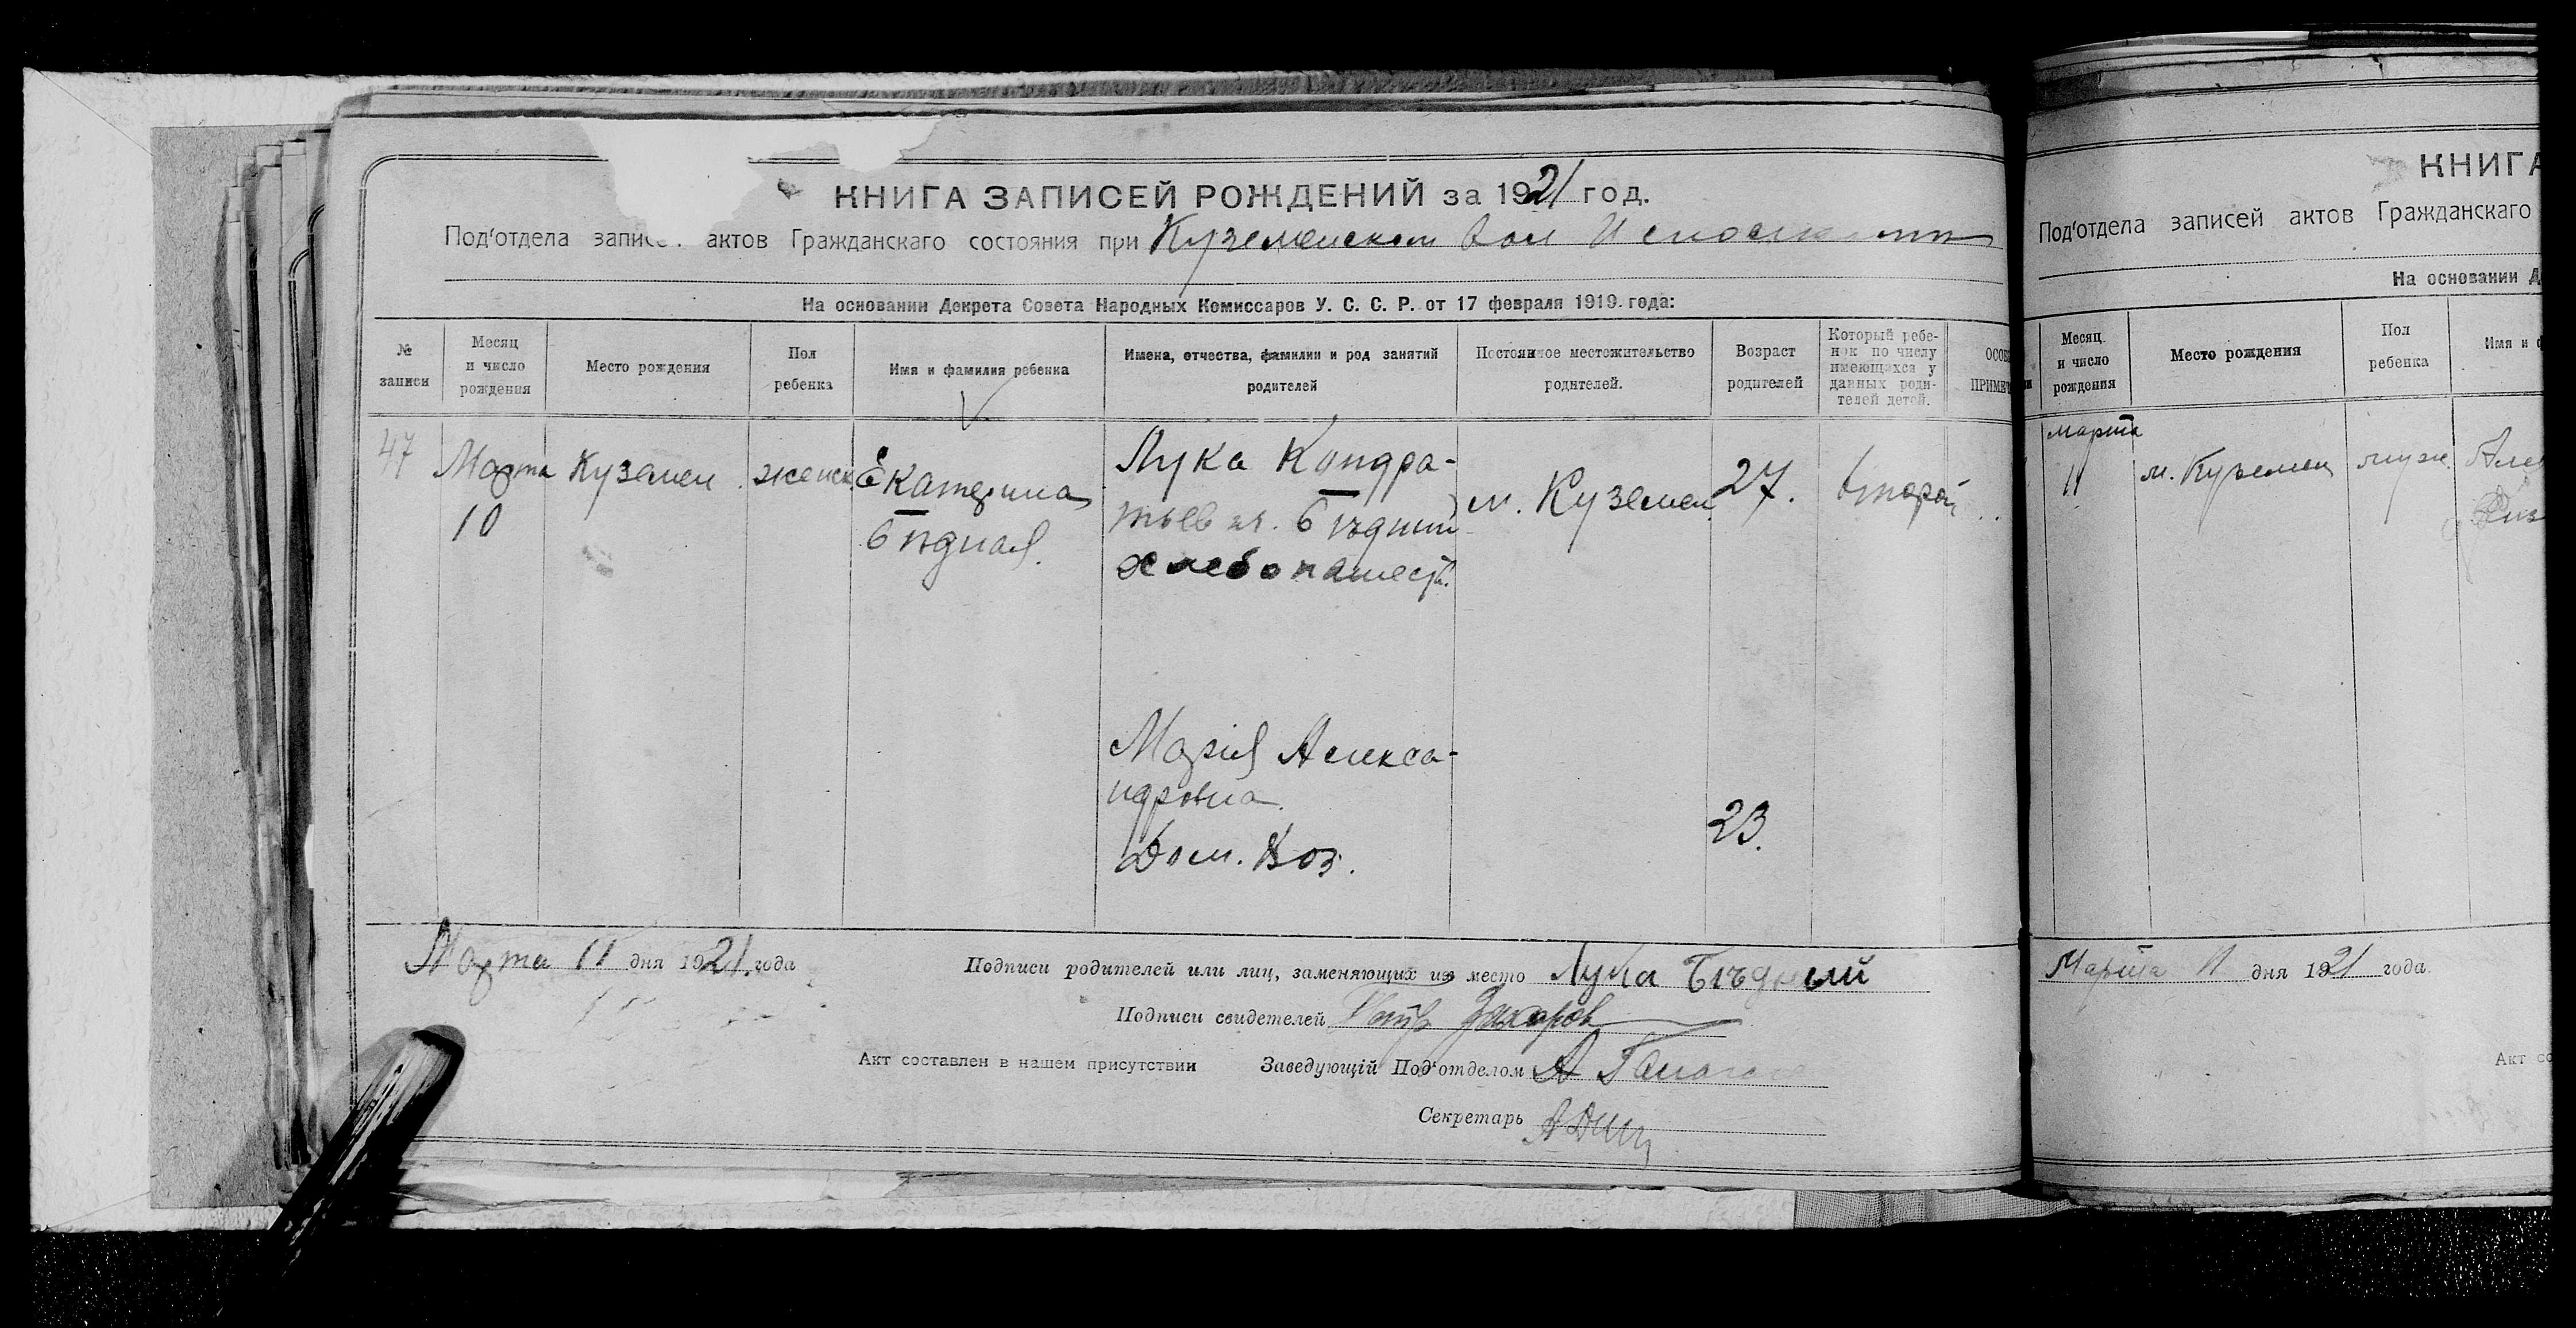 КНИГА ЗАПИСЕЙ РОЖДЕНИЙ за 1921 год.
Под'отдела запис актов Гражданскаго состояния при Куземенском Вол
На основании Декрета Совета Народных Комиссаров У. С. С. Р. от 17 февраля 1919 года:
№ записи
Месяц и число рождения
Место рождения
Пол ребенка
Имя и фамилия ребенка
Имена, отчества, фамилии и род занятий родителей
Постоянное местожительство родителей.
Возраст родителей
Который ребенок по числу имеющихся у данных родителей детей.
ОСОБ
ПРИМЕЧ
47
Марта
10
Куземен
женск.
Екатерина
Бѣдная.
Лука Кондра-
тьев Бѣдный
хлебопашест.
м. Куземен.
27.
Второй
Мария Алекса-
ндровна.
Дом. Хоз.
23.
Марта 11 дня 1921 года
Подписи родителей или лиц, заменяющих их место Лука Бѣдный
Подписи свидетелей Петр Захаров
Акт составлен в нашем присутствии Заведующій Под'отделом А
Секретарь
КНИГА
Под'отдела записей актов Гражданскаго
На основании Д
Месяц и число рождения
Место рождения
Пол ребенка
Имя и ф
марта
11
м. Куземен
муж.
Але
Марта 11 дня 1921 года.
Акт со